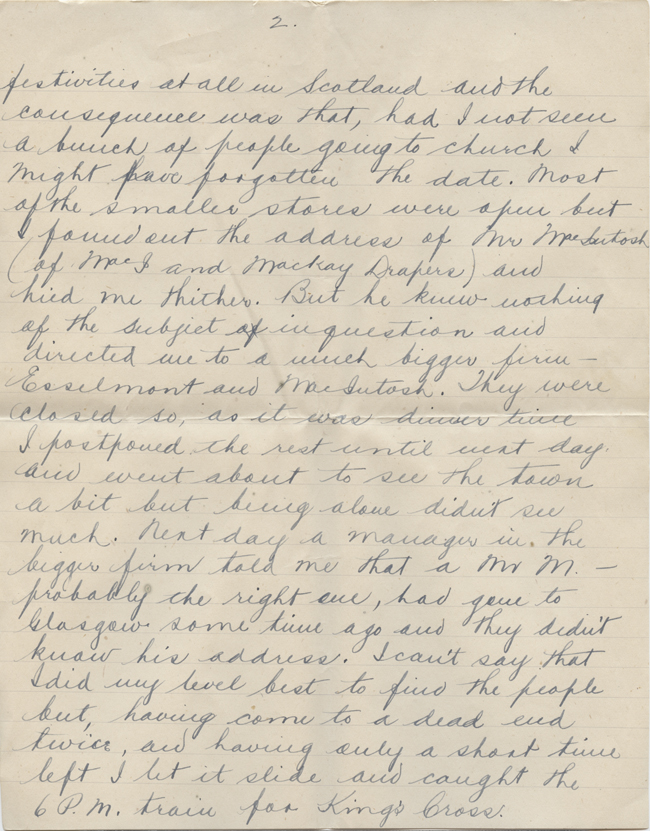 2.
festivities at all in Scotland and the
consequence was that, had I not seen
a bunch of people going to church I
might have forgotten the date. Most
of the smaller stores were open but
I found out the address of Mr MacIntosh
(of MacI and Mackay Drapers) and
hied me thither. But he knew nothing
of the subject of in question and
directed me to a much bigger firm —
Esselmont and MacIntosh. They were
closed so, as it was dinner time
I postponed the rest until next day.
and went about to see the town
a bit but being alone didn't see
much. Next day a manager in the
bigger firm told me that a Mr M. —
probably the right one, had gone to
Glasgow some time ago and they didn't
know his address. I can't say that
I did my level best to find the people
but, having come to a dead end
twice, and having only a short time
left I let it slide and caught the
6 P.M. train for King's Cross.